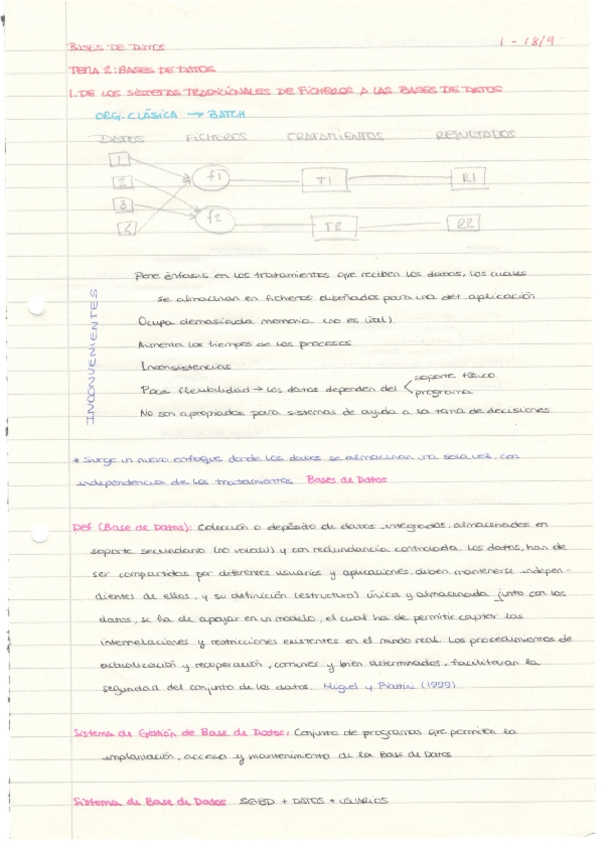 1 - 18/9
BASES DE DATOS
TEMA 2: BASES DE DATOS
1. DE LOS SISTEMAS TRADICIONALES DE FICHEROS A LAS BASES DE DATOS
ORG. CLÁSICA → BATCH
DATOS FICHEROS TRATAMIENTOS RESULTADOS
1
2
3
4
f1 T1 R1
f2 T2 R2
INCONVENIENTES
Pone énfasis en los tratamientos que reciben los datos, los cuales
se almacenan en ficheros diseñados para una det. aplicación
Ocupa demasiada memoria (no es útil).
Aumenta los tiempos de los procesos
Inconsistencias
Poca flexibilidad → los datos dependen del
soporte físico
programa
No son apropiados para sistemas de ayuda a la toma de decisiones
* Surge un nuevo enfoque donde los datos se almacenan una sola vez, con
independencia de los tratamientos Bases de Datos
Def (Base de Datos): Colección o depósito de datos integrados, almacenados en
soporte secundario (no volátil) y con redundancia controlada. Los datos, han de
ser compartidos por diferentes usuarios y aplicaciones, deben mantenerse indepen-
dientes de ellos, y su definición (estructura) única y almacenada junto con los
datos, se ha de apoyar en un modelo, el cual ha de permitir captar las
interrelaciones y restricciones existentes en el mundo real. Los procedimientos de
actualización y recuperación, comunes y bien determinados, facilitarán la
seguridad del conjunto de los datos. Miguel y Piattini (1999)
Sistema de Gestión de Base de Datos: Conjunto de programas que permiten la
implantación, acceso y mantenimiento de la Base de Datos
Sistema de Base de Datos SGBD + DATOS + USUARIOS